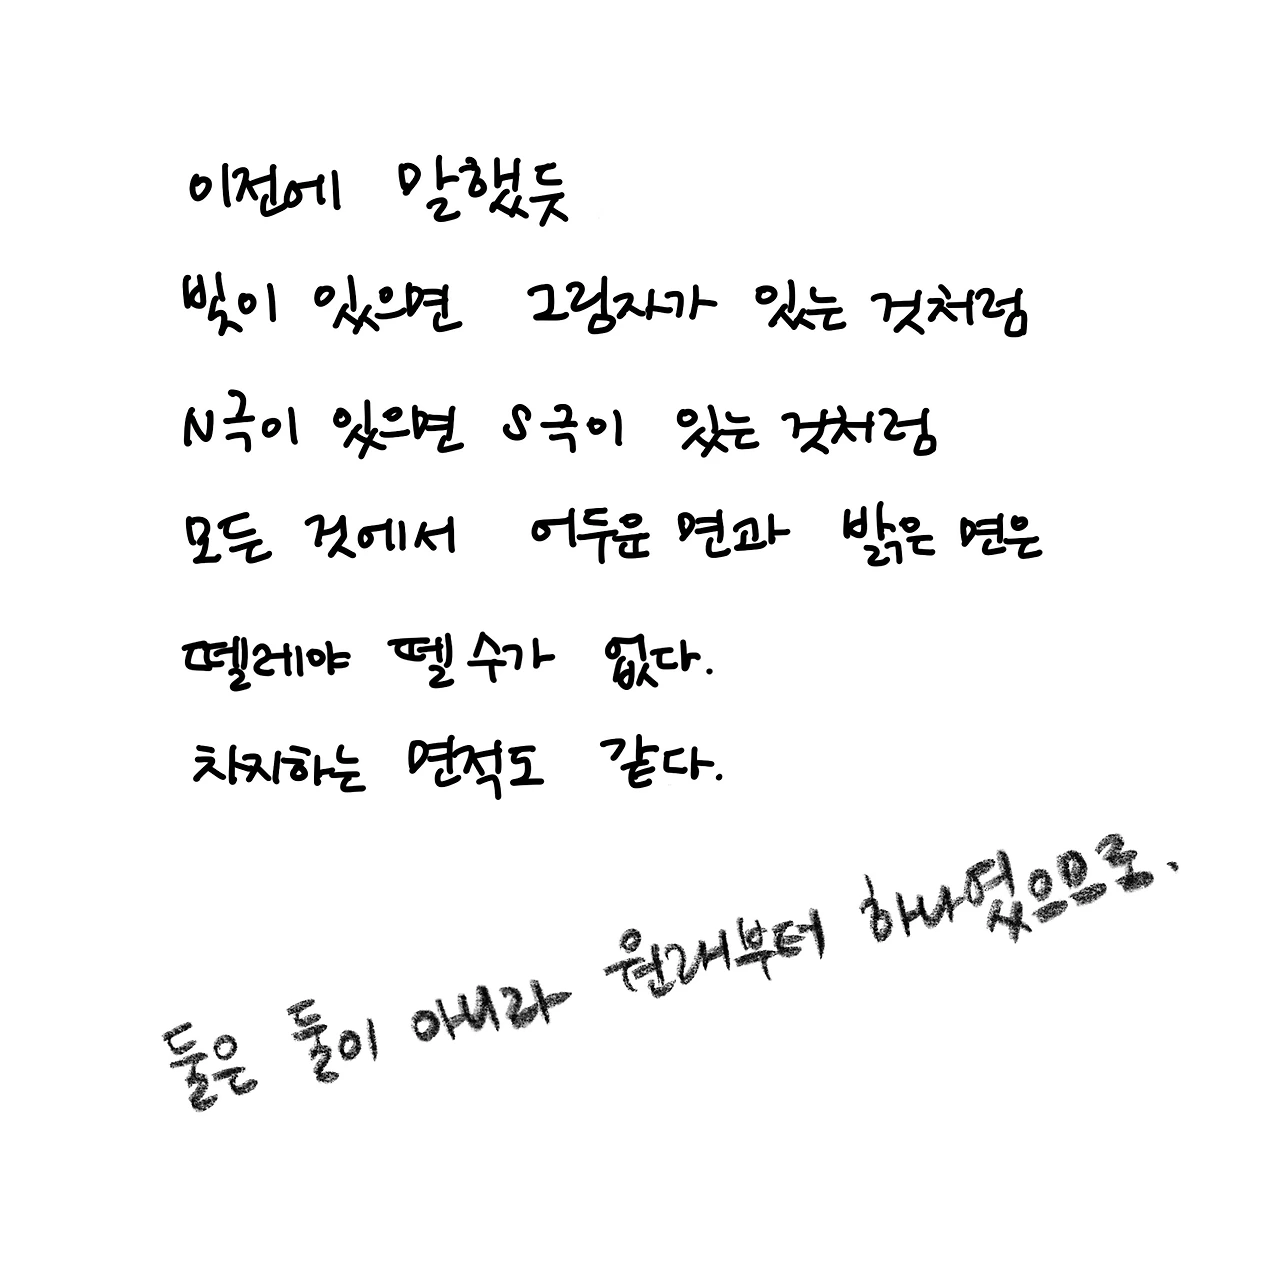 이전에 말했듯
빛이 있으면 그림자가 있는 것처럼
N극이 있으면 S극이 있는 것처럼
모든 것에서 어두운 면과 밝은 면은
뗄레야 뗄 수가 없다.
차지하는 면적도 같다.
둘은 둘이 아니라 원래부터 하나였으므로.